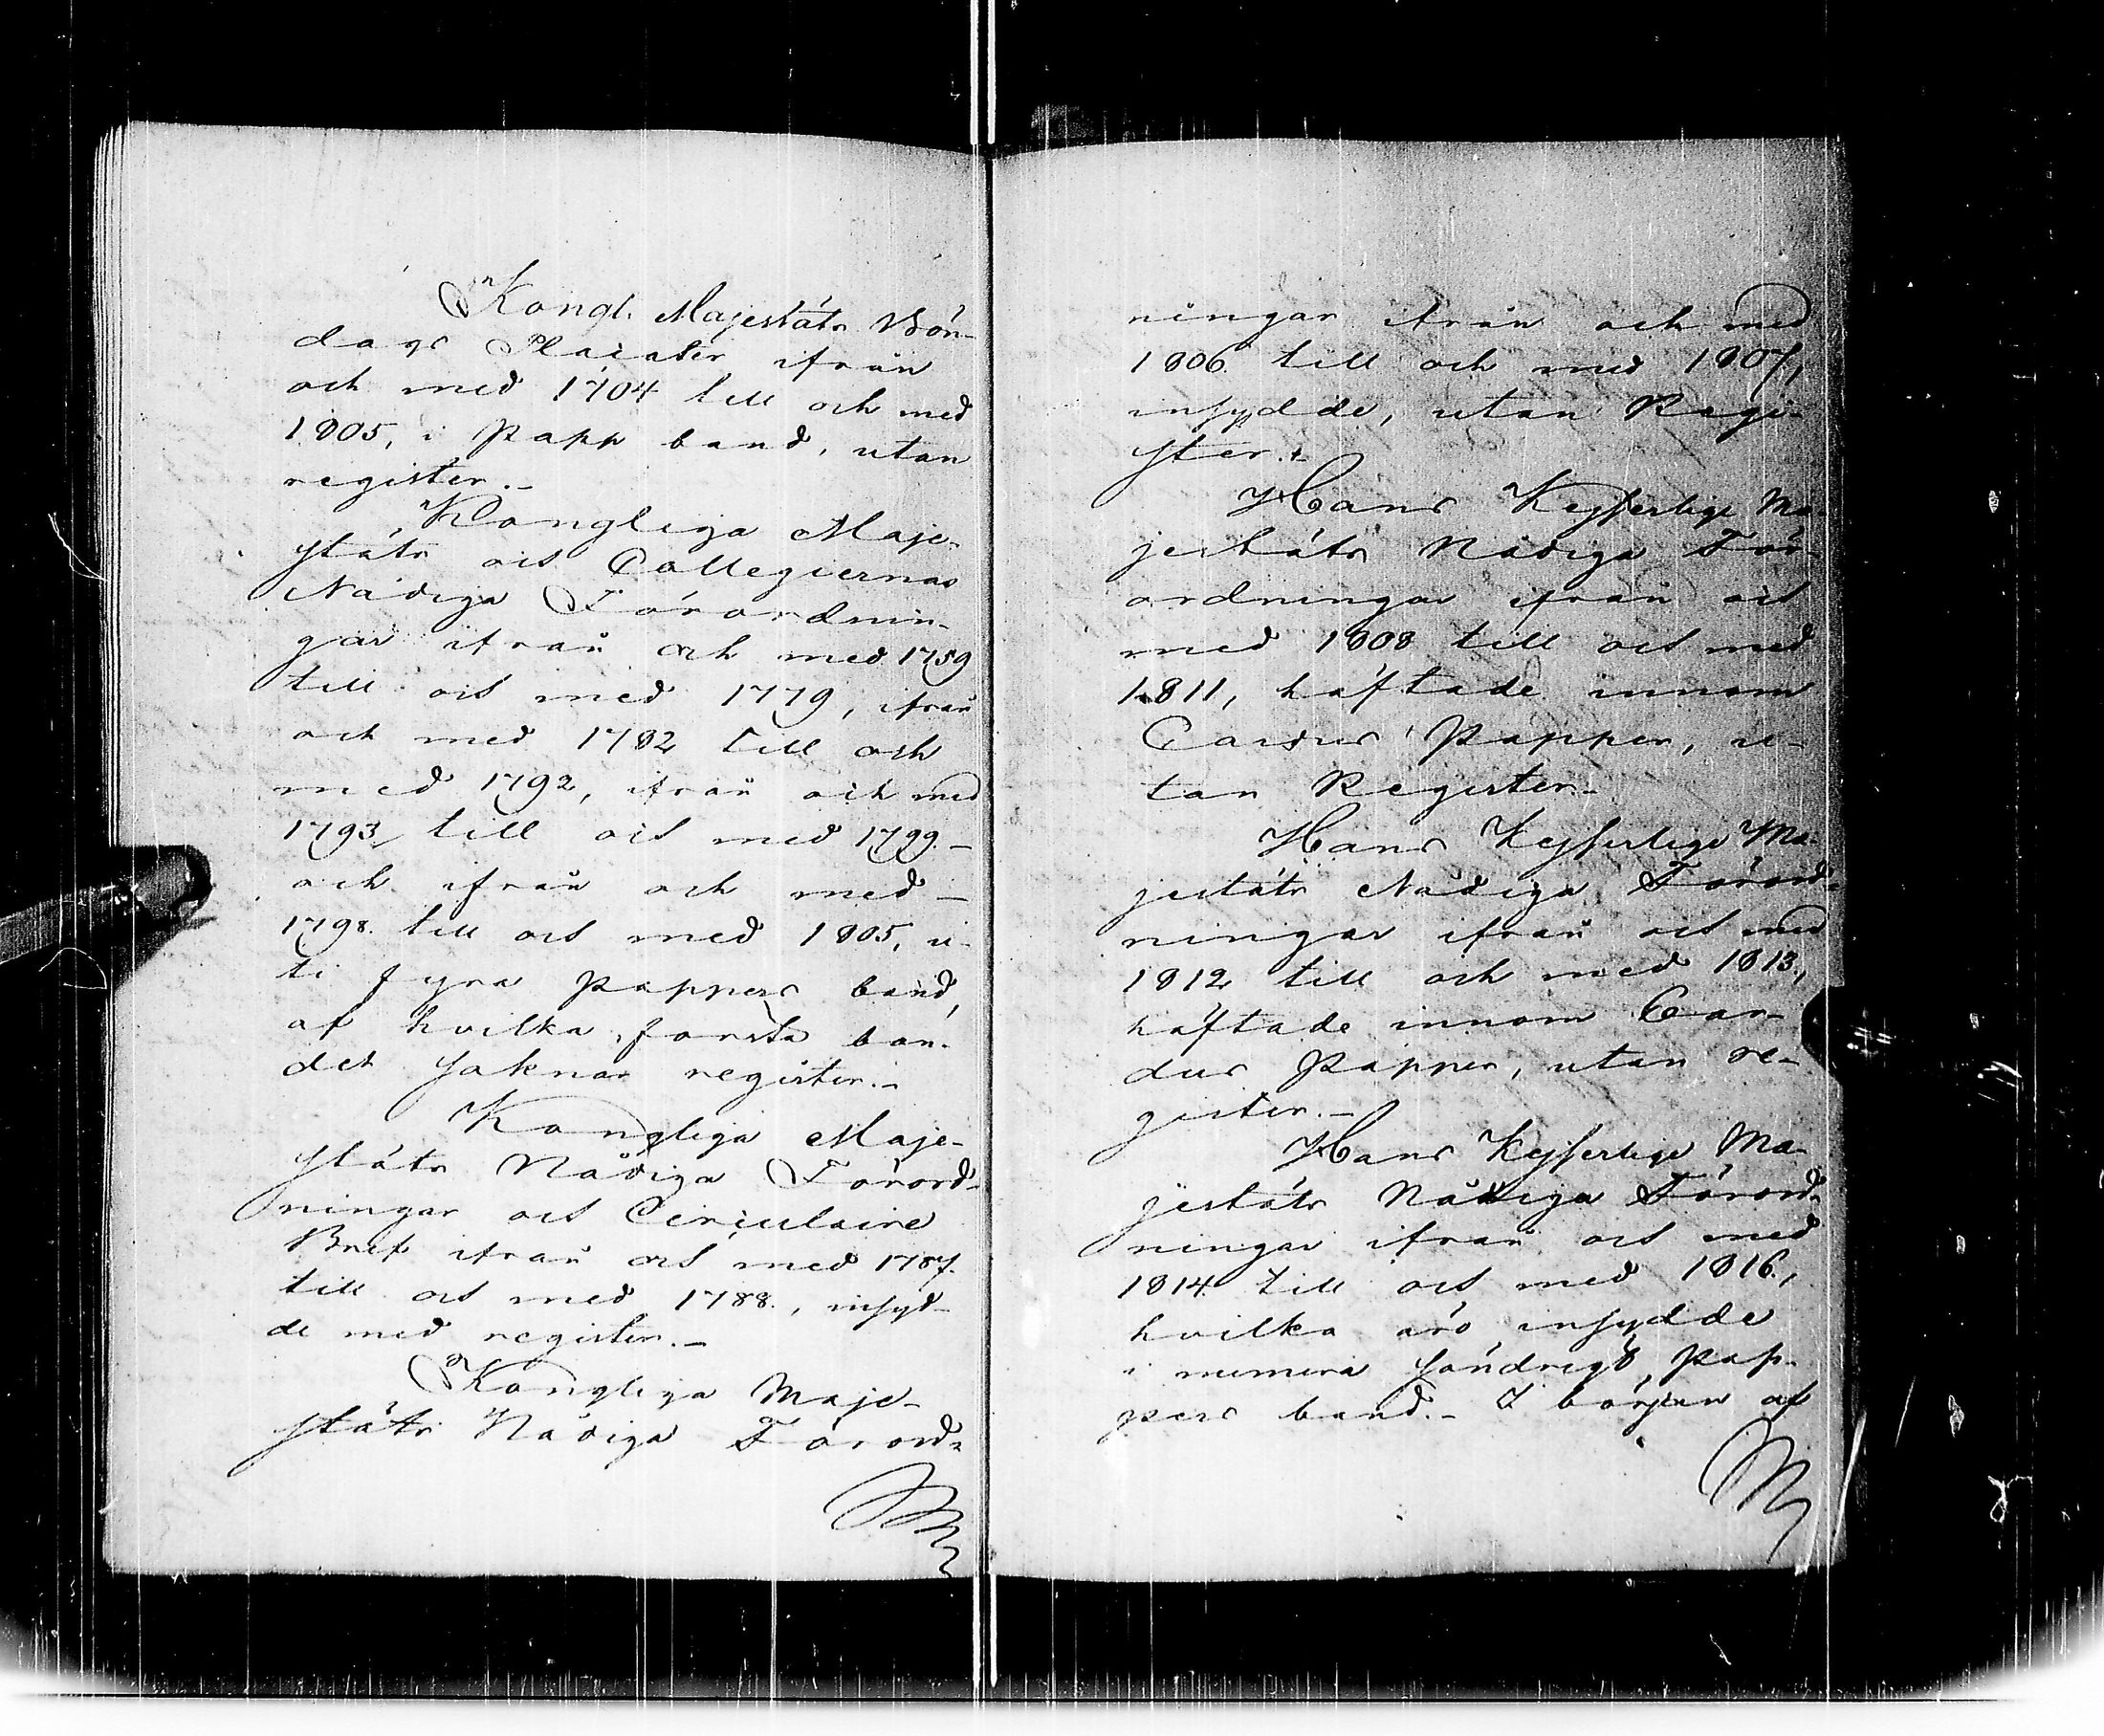 Kongl. Majestäts Bön-
dags Placater ifrån
och med 1704 till och med
1805, i Papp band, utan
register.-
Kongliga Maje-
stäts och Collegiernas
Nådiga Förordnin-
gar ifrån och med 1759
till och med 1779, ifrån
och med 1782 till och
med 1792, ifrån och med
1793 till och med 1799-
och ifrån och med-
1798. till och med 1805, u-
ti fyra Pappers band,
af hvilka första ban-
det saknar register.-
Kongliga Maje-
stäts Nådiga Förord-
ningar och Circulaire
Bref ifrån och med 1787.
till och med 1788., insyd-
de med register.-
Kongliga Maje-
stäts Nådiga Förord-
ningar ifrån och med
1806. till och med 1807,
insydde, utan Regi-
ster.-
Hans Kejserlige Ma-
jestäts Nådiga För-
ordningar ifrån och
med 1808 till och med
1811, häftade innom
Cardus Papper, u-
tan Register.-
Hans Kejserlige Ma-
jestäts Nådiga Förord-
ningar ifrån och med
1812 till och med 1813.,
häftade innom Car-
dus Papper, utan re-
gister.-
Hans Kejserlige Ma-
jestäts Nådiga Förord-
ningar ifrån och med
1814. till och med 1816.,
hvilka äro insydde
i numera söndrigt Pap-
pers band.- I början af